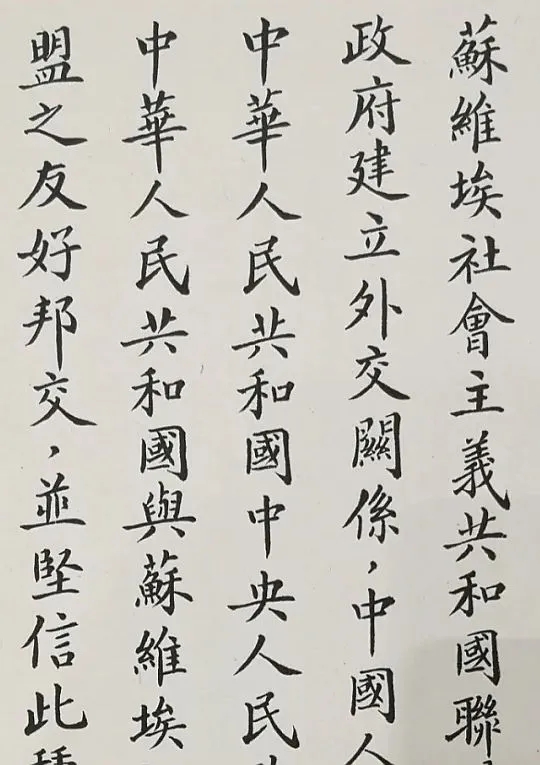 蘇維埃社會主義共和國聯
政府建立外交關係，中國人
中華人民共和國中央人民
中華人民共和國與蘇維埃
盟之友好邦交，並堅信此種